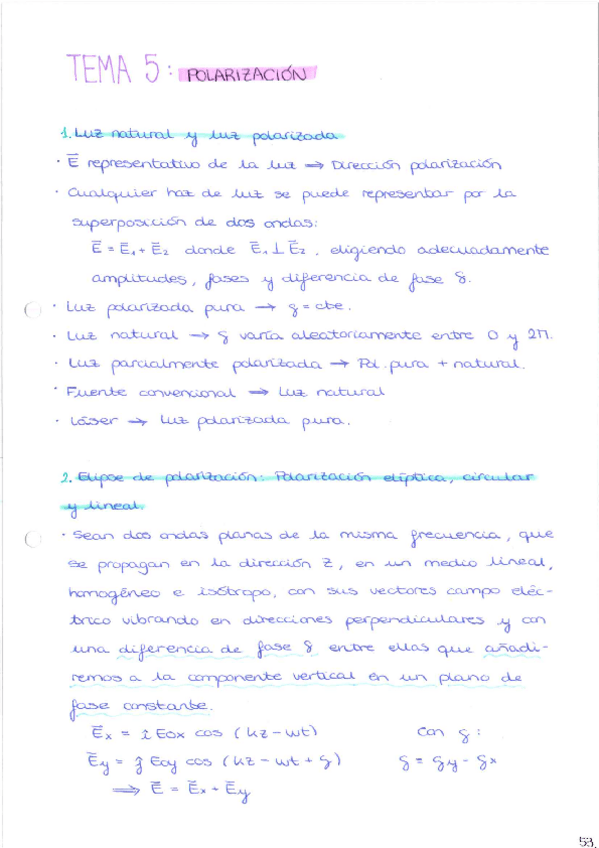 TEMA 5: POLARIZACIÓN
1. Luz natural y luz polarizada
· E⃗ representativo de la luz ⇒ Dirección polarización
· Cualquier haz de luz se puede representar por la
superposición de dos ondas:
E⃗ = E⃗₁ + E⃗₂ donde E⃗₁ ⊥ E⃗₂, eligiendo adecuadamente
amplitudes, fases y diferencia de fase δ.
· Luz polarizada pura → δ = cte.
· Luz natural → δ varía aleatoriamente entre 0 y 2π.
· Luz parcialmente polarizada → Pol. pura + natural.
· Fuente convencional → Luz natural
· Láser → Luz polarizada pura.
2. Elipse de polarización: Polarización elíptica, circular
y lineal.
· Sean dos ondas planas de la misma frecuencia, que
se propagan en la dirección z, en un medio lineal,
homogéneo e isótropo, con sus vectores campo eléc-
trico vibrando en direcciones perpendiculares y con
una diferencia de fase δ entre ellas que añadi-
remos a la componente vertical en un plano de
fase constante.
E⃗x = î Eox cos (kz - wt) Con δ:
E⃗y = ĵ Eoy cos (kz - wt + δ) δ = δy - δx
⇒ E⃗ = E⃗x + E⃗y
53